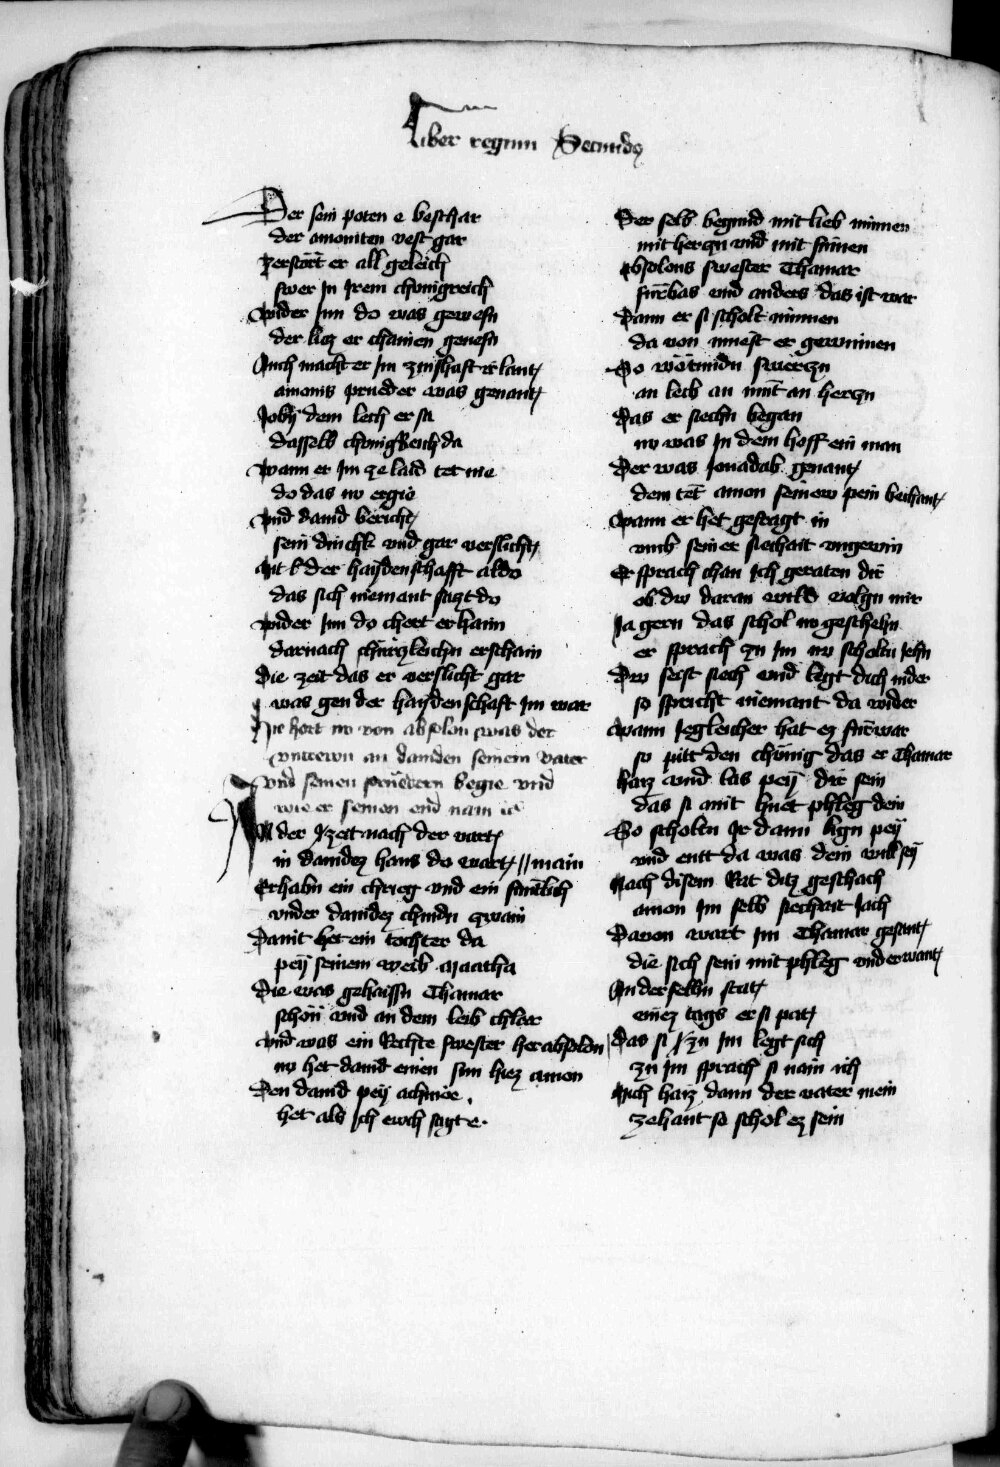 Liber regum Secundo
Der sein poten e beschar
der amoniten vest gar
Zerstört er all geleich
swer Jn Jrem chönigreich
Wider Jnn do was gewesn
der liez er chainen genesn
Auch macht er Jm zinshaft ir lant
amonis prueder was genant
Joby dem lech er sa
dasselb chönigReich da
Wann er Jm ze laid tet nie
do das nv ergie
Vnd dauid bericht
sein dinchk vnd gar verslicht
Mit der haydenschafft aldo
das sich niemant sazt do
Wider Jnn do chert er haim
darnach chürczleichn erschain
Die zeit das er verslicht gar
was gen der haydenschaft Jm war
Hie hort nv von absolon was der
vntrewn an dauiden seinem vater
vnd seinen prüedern begie vnd
wie er seinen end nam
Jn der Zeit nach der vart
in dauidez haus do wart // main
Erhabn ein chrieg vnd ein
vnder dauidez chindn zwain
Dauit het ein tochter da
pey seinem weib Maacha
Die was gehaissn Thamar
schön vnd an dem leib chlar
Vnd was ein Rechte swester her absolon
nv het dauid einen sun hiez amon
Den dauid pey achinoe
het als Jch ewch sagte.
Der selb begund mit lieb minnen
mit herczn vnd mit sinnen
Absolons swester Thamar
fürbas vnd anders das ist war
Dann er si scholt minnen
da von muest er gewinnen
So wütundn smerczn
an leib an müt an herczn
Das er siechn began
nv was Jn dem hoff ein man
Der was Jonadab genant
dem tet amon seinew pein bechant
Wann er het gefragt in
vmb seiner siechait vngewin
Er sprach chan Jch geraten dir
ob dw daran wild volgn mir
Ja gern das schol nv geschehn
er sprach zu Jm nv scholtu Jehn
Dw seist siech vnd legt dich nider
so spricht niemant da wider
Wann Jegleicher hat ez fürwar
so pitt den chünig das er Thamar
haiz vnd las pey dir sein
das si mit huet phleg dein
So scholtu Jr dann lign pey
vnd entt da was dein will sey
Nach disem Rat ditz geschach
amon Jm selb siechait Jach
Dauon wart Jm Thamar gesant
die sich sein mit phleg vnderwant
An der selbn stat
einez tags er si pat
Das si zu Jm legt sich
zu Jm sprach si nain ich
Mich haiz dann der vater mein
zehant so schol ez sein